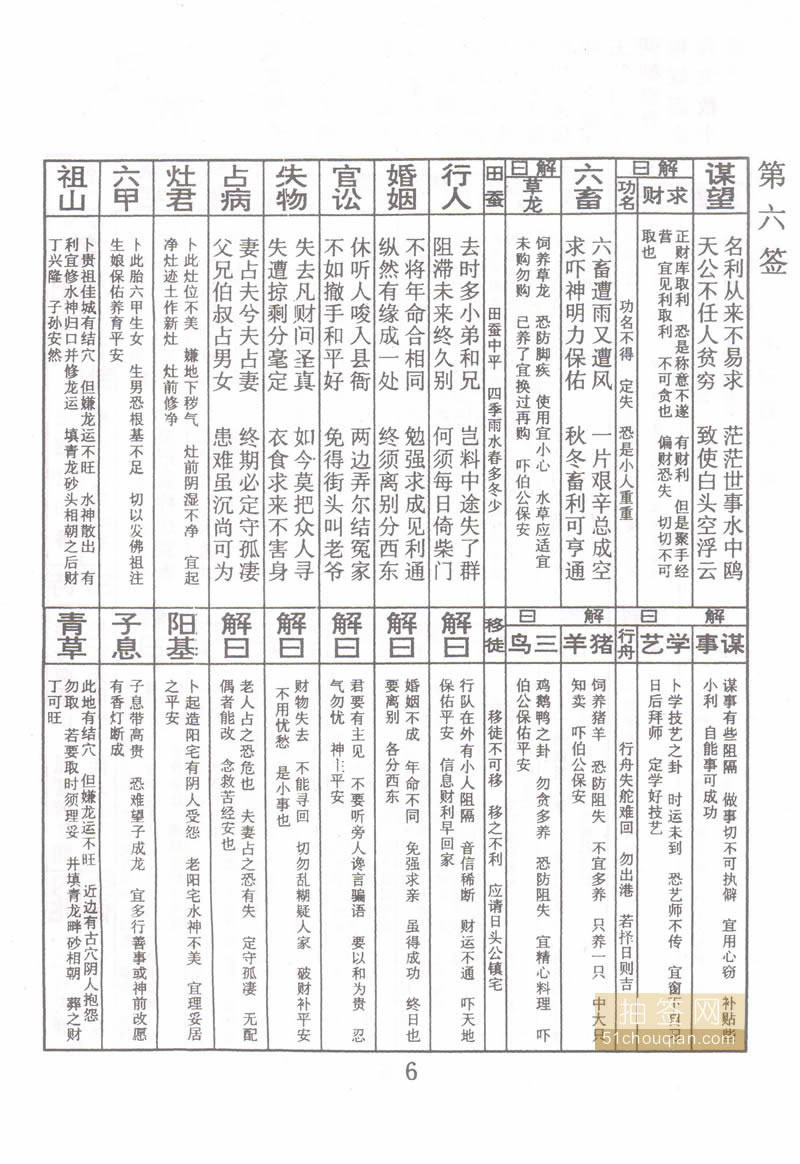 第六签
谋望
名利从来不易求 茫茫世事水中鸥
天公不任人贫穷 致使白头空浮云
解曰
求财
正财库取利 恐是称意不遂 有财利 但是聚手经
营 宜见利取利 不可贪也 偏财恐失 切切不可
取也
功名
功名不得 定失 恐是小人重重
六畜
六畜遭雨又遭风 一片艰辛总成空
求吓神明力保佑 秋冬畜利可亨通
解曰
草龙
饲养草龙 恐防脚疾 使用宜小心 水草应适宜
未购勿购 已养了宜换过再购 吓伯公保安
田蚕
田蚕中平 四季雨水春多冬少
行人
去时多小弟和兄 岂料中途失了群
阻滞未来终久别 何须每日倚柴门
婚姻
不将年命合相同 勉强求成见利通
纵然有缘成一处 终须离别分西东
官讼
休听人唆入县衙 两边弄尔结冤家
不如撤手和平好 免得街头叫老爷
失物
失去凡财问圣真 如今莫把众人寻
失遭掠剩分毫定 衣食求来不害身
占病
妻占夫兮夫占妻 终期必定守孤凄
父兄伯叔占男女 患难虽沉尚可为
灶君
卜此灶位不美 嫌地下秽气 灶前阴湿不净 宜起
净灶迹土作新灶 灶前修净
六甲
卜此胎六甲生女 生男恐根基不足 切以发佛祖注
生娘保佑养育平安
祖山
卜贵祖佳城有结穴 但嫌龙运不旺 水神散出 有
利宜修水神归口并修龙运 填青龙砂头相朝之后财
丁兴隆 子孙安然
解曰
谋事
谋事有些阻隔 做事切不可执僻 宜用心窃 补贴些
小利 自能事可成功
学艺
卜学技艺之卦 时运未到 恐艺师不传 宜窗下
日后拜师 定学好技艺
行舟
行舟失舵难回 勿出港 若择日则吉
解曰
猪羊
饲养猪羊 恐防阻失 不宜多养 只养一只 中大只
知卖 吓伯公保安
三鸟
鸡鹅鸭之卦 勿贪多养 恐防阻失 宜精心料理 吓
伯公保佑平安
移徒
移徒不可移 移之不利 应请日头公镇宅
解曰
行队在外有小人阻隔 音信稀断 财运不通 吓天地
保佑平安 信息财利早回家
解曰
婚姻不成 年命不同 免强求亲 虽得成功 终日也
要离别 各分西东
解曰
君要有主见 不要听旁人谗言骗语 要以和为贵 忍
气勿忧 神上平安
解曰
财物失去 不能寻回 切勿乱糊疑人家 破财补平安
不用忧愁 是小事也
解曰
老人占之恐危也 夫妻占之恐有失 定守孤凄 无配
偶者能改 念救苦经安也
阳基
卜起造阳宅有阴人受怨 老阳宅水神不美 宜理妥居
之平安
子息
子息带高贵 恐难望子成龙 宜多行善事或神前改愿
有香灯断成
青草
此地有结穴 但嫌龙运不旺 近边有古穴阴人抱怨
勿取 若要取时须理妥 并填青龙畔砂相朝 葬之财
丁可旺
抽签网
51chouqian.com
6